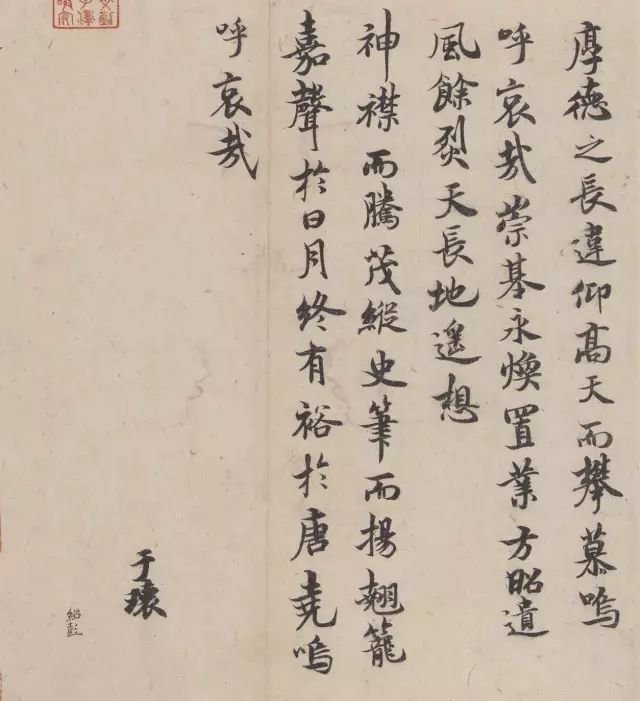 厚德之長違仰高天而攀慕嗚
呼哀哉崇基永煥置業方昭遺
風餘烈天長地遥想
神襟而騰茂縱史筆而揚翹籠
嘉聲於日月終有裕於唐堯嗚
呼哀哉
于瓌
紹彭